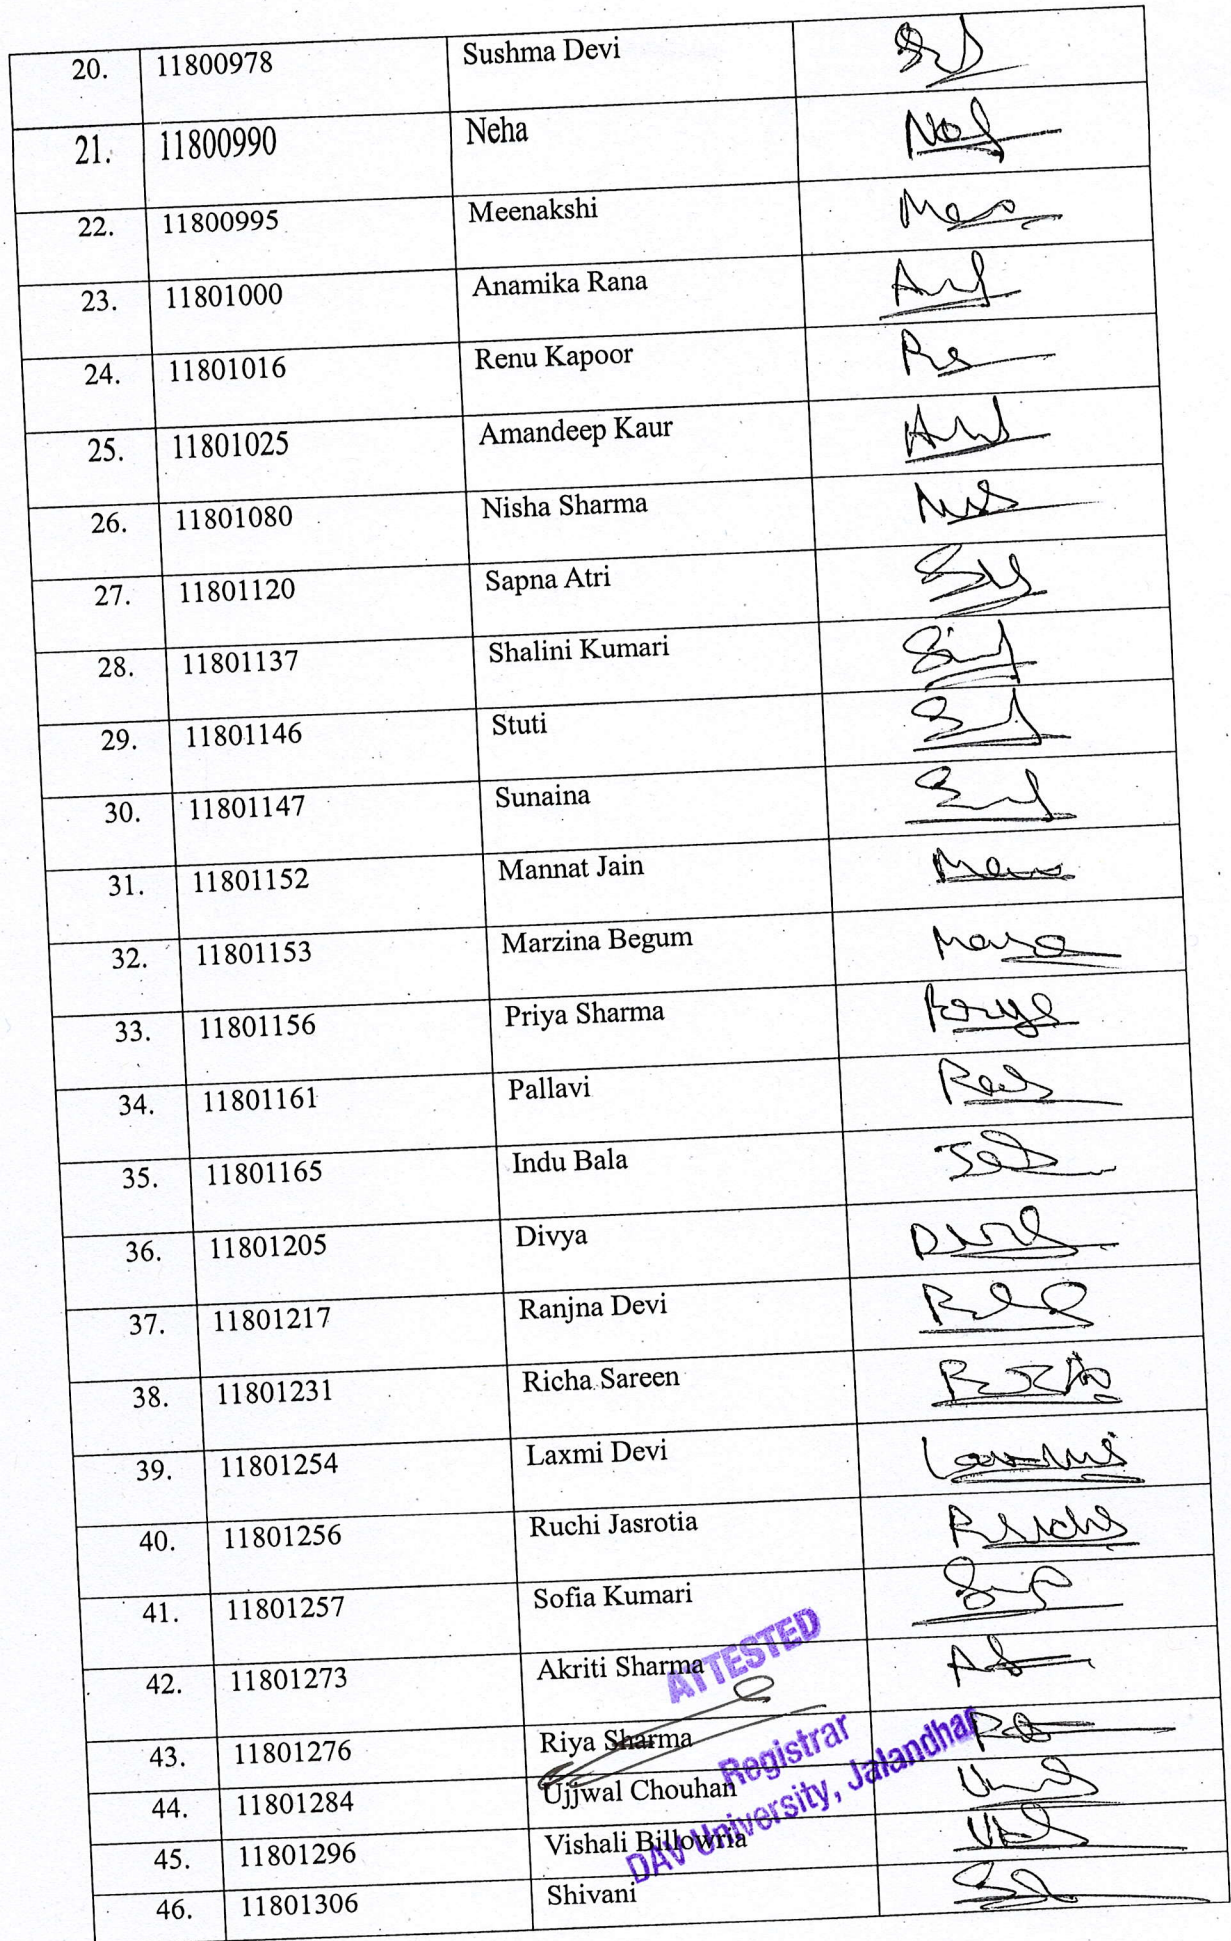 20. 11800978 Sushma Devi
21. 11800990 Neha
22. 11800995 Meenakshi
23. 11801000 Anamika Rana
24. 11801016 Renu Kapoor
25. 11801025 Amandeep Kaur
26. 11801080 Nisha Sharma
27. 11801120 Sapna Atri
28. 11801137 Shalini Kumari
29. 11801146 Stuti
30. 11801147 Sunaina
31. 11801152 Mannat Jain
32. 11801153 Marzina Begum
33. 11801156 Priya Sharma
34. 11801161 Pallavi
35. 11801165 Indu Bala
36. 11801205 Divya
37. 11801217 Ranjna Devi
38. 11801231 Richa Sareen
39. 11801254 Laxmi Devi
40. 11801256 Ruchi Jasrotia
41. 11801257 Sofia Kumari
42. 11801273 Akriti Sharma
43. 11801276 Riya Sharma
44. 11801284 Ujjwal Chouhan
45. 11801296 Vishali Billowria
46. 11801306 Shivani
ATTESTED
Registrar
DAV University, Jalandhar